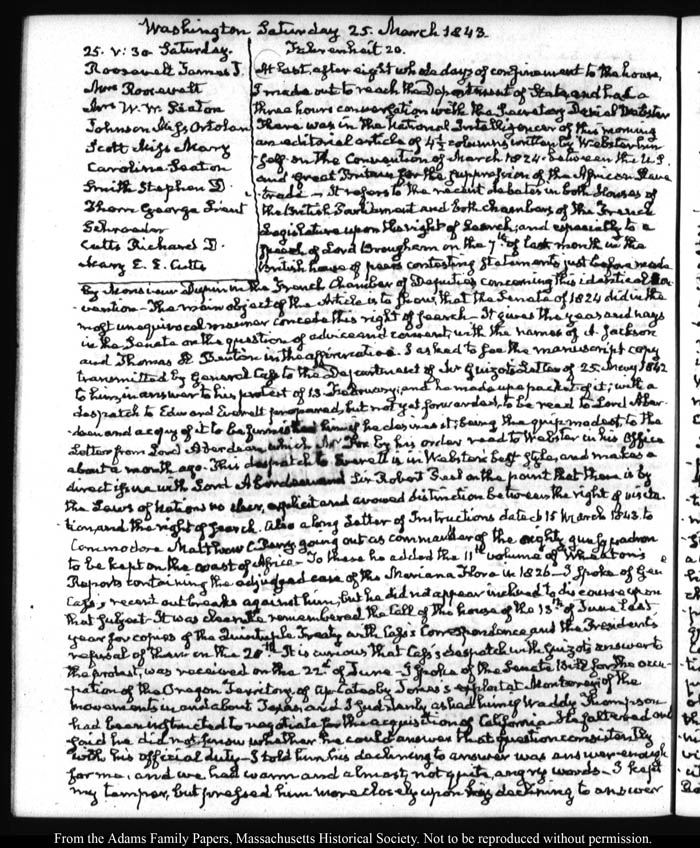 Washington Saturday 25. March 1843.
25. V: 30 Saturday. Fahrenheit 20.
Roosevelt James J.
Mrs Roosevelt
Mrs W. W. Seaton
Johnson Miss
Scott Miss Mary
Caroline Seaton
Smith Stephen D.
Thom George Lieut
Schroeder
Cutts Richard D.
Mary E. E. Cutts
At last, after eight whole days of confinement to the house,
I made out to reach the Department of State, and had a
three hours conversation with the Secretary Daniel Webster
There was in the National Intelligencer of this morning
an editorial article of 4½ columns written by Webster him
self. on the Convention of March 1824. between the U.S.
and Great Britain for the suppression of the African Slave
trade — It refers to the recent debates in both Houses of
the British Parliament and both chambers of the French
Legislature upon the right of Search; and especially to a
speech of Lord Brougham on the 7th of last month in the
British house of peers contesting statements just before made
by Monsieur Dupin in the French Chamber of Deputies concerning this identical Con
vention — The main object of the Article is to show, that the Senate of 1824 did in the
most unequivocal manner concede this right of search — It gives the yeas and nays
in the Senate on the question of advice and consent, with the names of A. Jackson
and Thomas H. Benton in the affirmative. I asked to see the manuscript copy
transmitted by General Cass to the Department of Mr Guizot's Letter of 25. May 1842
to him, in answer to his protest of 13. February; and he made up a packet of it; with a
despatch to Edward Everett prepared, but not yet forwarded, to be read to Lord Aber
-deen and a copy of it to be furnished him if he desires it; being the to the
Letter from Lord Aberdeen which Mr Fox by his order read to Webster in his Office
about a month ago. This despatch to Everett is in Webster's best style, and makes a
direct issue with Lord Aberdeen and Sir Robert Peel on the point that there is by
the Laws of Nations no clear, explicit and avowed distinction between the right of visita
-tion, and the right of search. Also a long Letter of Instructions dated 15 March 1843. to
Commodore Matthew C. Perry going out as commander of the eighty gun squadron
to be kept on the coast of Africa — To these he added the 11th volume of Wheaton's
Reports containing the adjudged case of the Mariana Flora in 1826 — I spoke of Gen
Cass's recent outbreaks against him; but he did not appear inclined to discourse upon
that subject — It was clear he remembered the Call of the house of the 13th of June last
year for copies of the Quintuple Treaty with Cass's Correspondence, and the President's
refusal of them on the 20th. It is curious that Cass's despatch with Guizot's answer to
the protest, was received on the 22d of June — I spoke of the Senate Bill for the occu
-pation of the Oregon Territory, of Ap Catesby Jones's exploit at Monterey, of the
movements in and about Texas, and I suddenly asked him if Waddy Thompson
had been instructed to negotiate for the acquisition of California. He faltered and
said he did not know whether he could answer that question consistently
with his official duty — I told him his declining to answer was answer enough
for me: and we had warm and almost, not quite angry words — I kept
my temper, but pressed him more closely upon his declining to answer
From the Adams Family Papers, Massachusetts Historical Society. Not to be reproduced without permission.